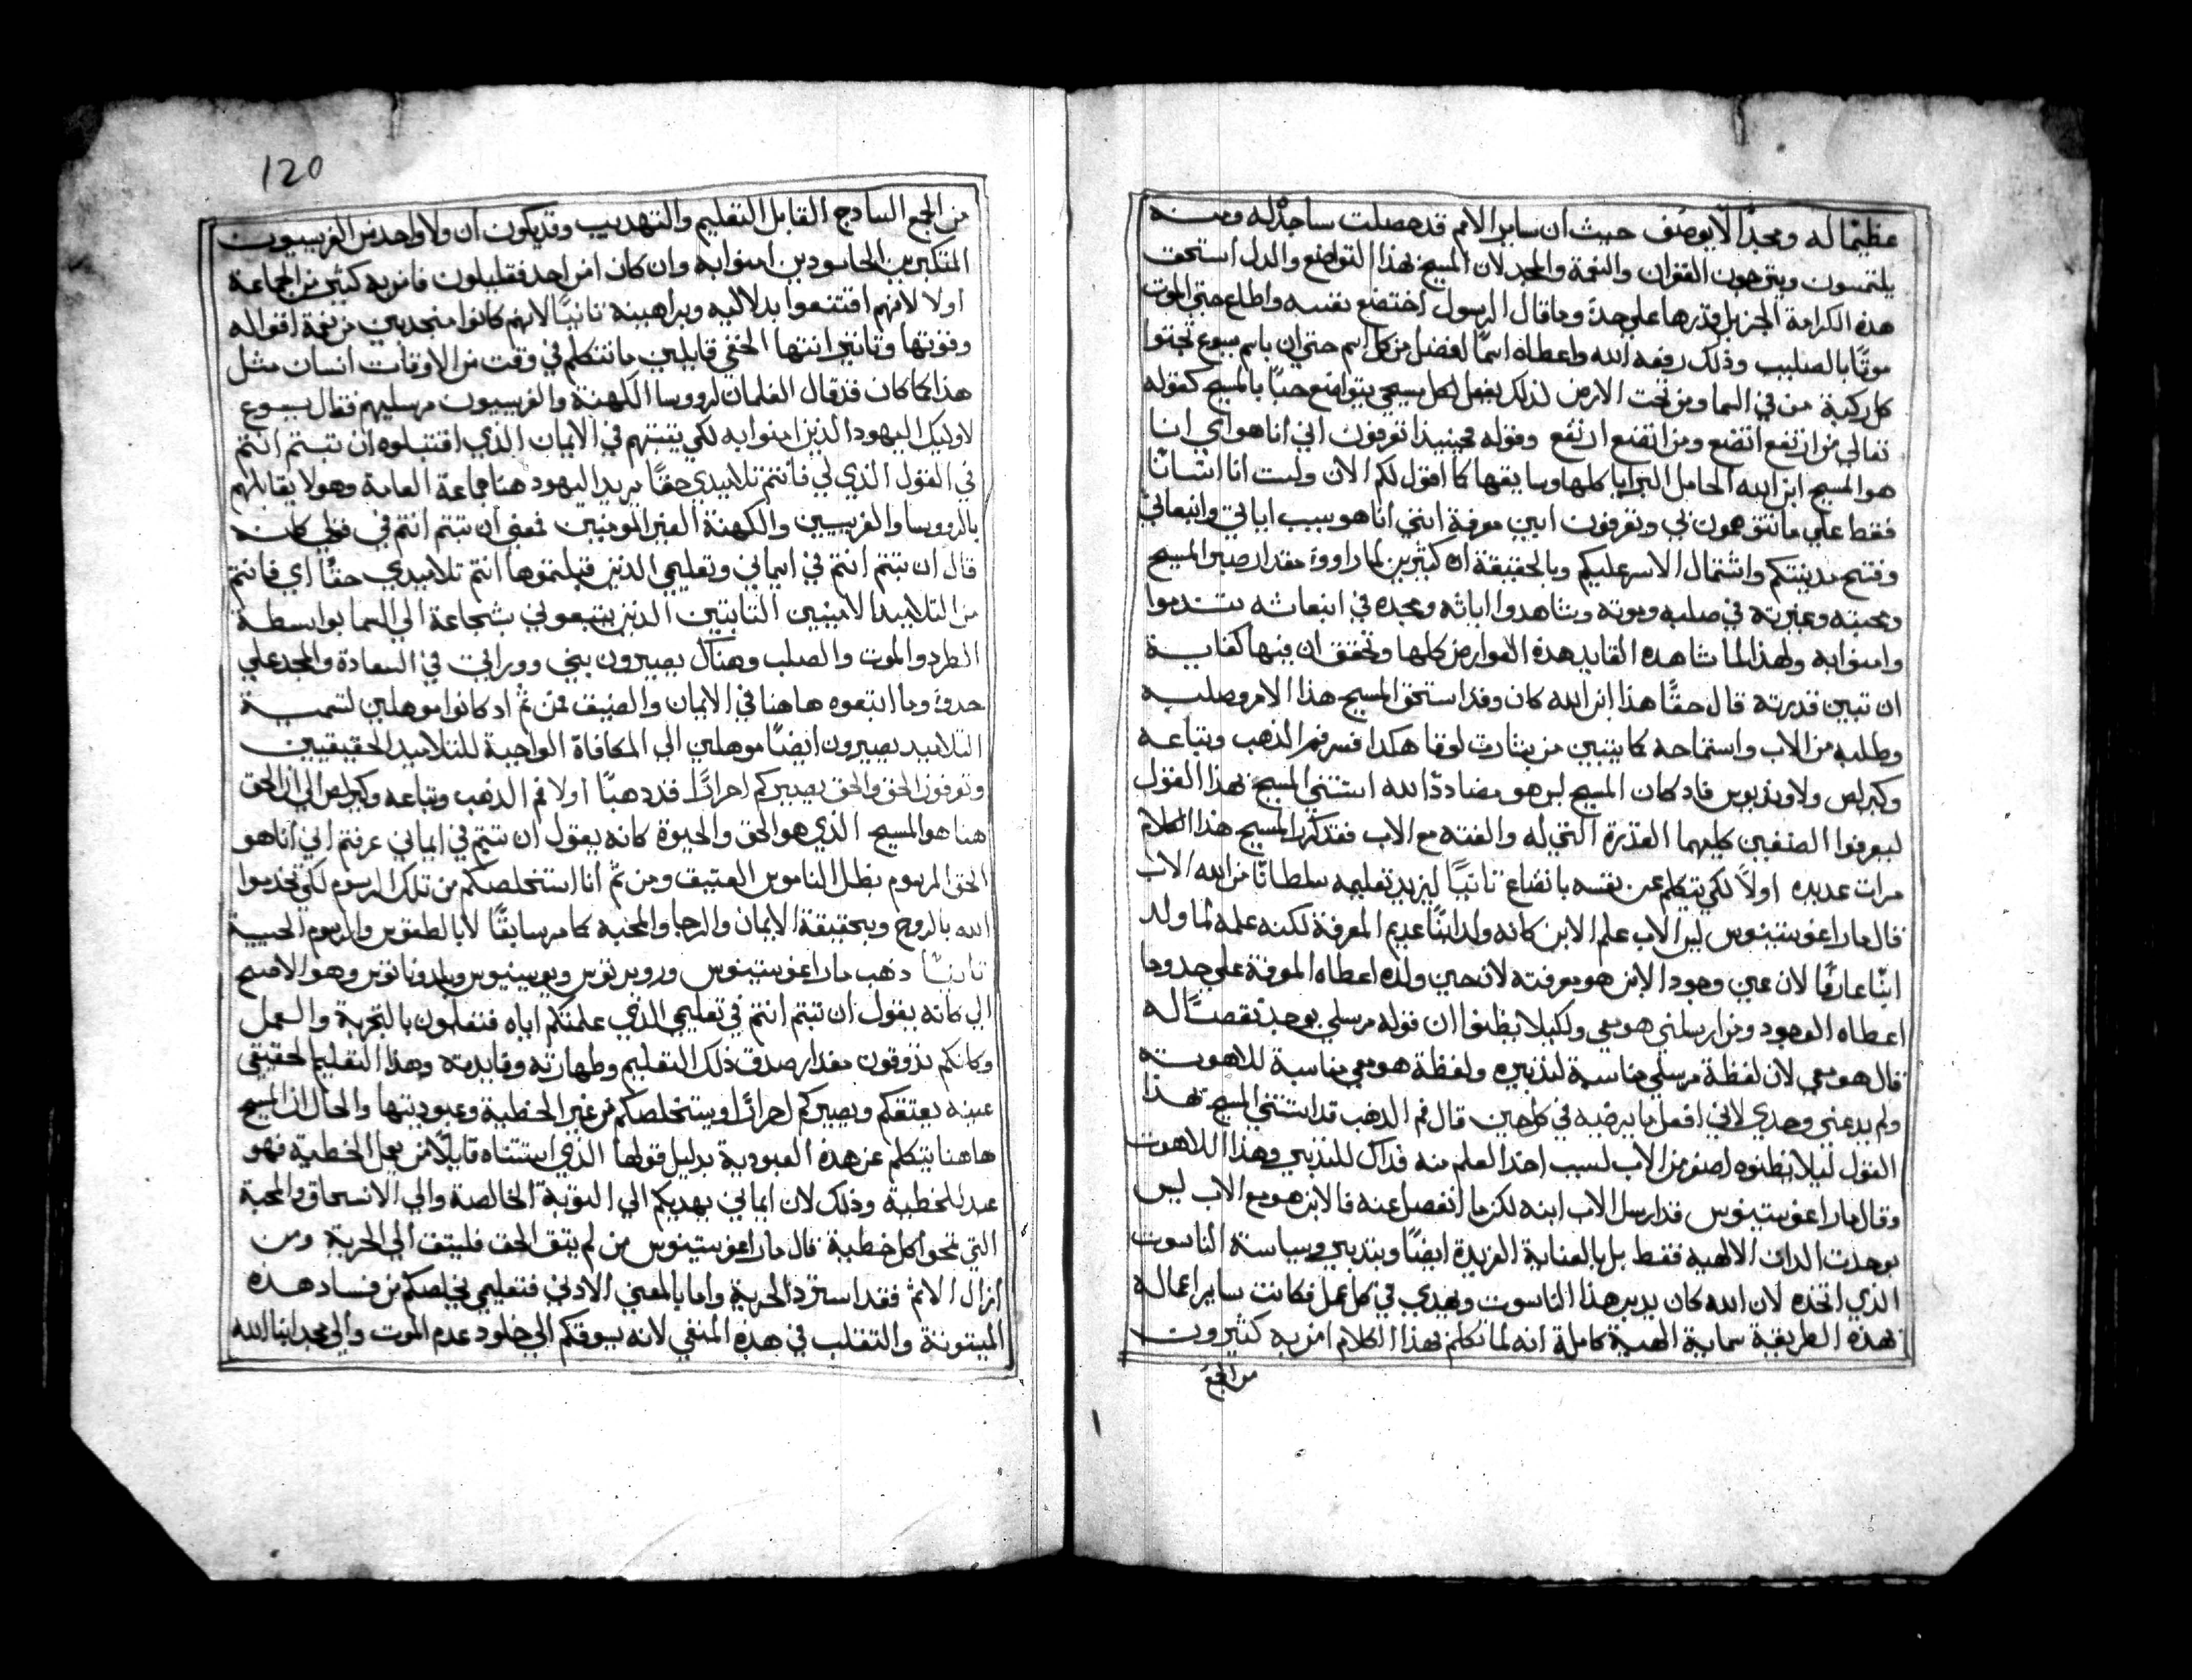 عظيمًا له ومجدًا لا يوصف حيث ان ساير الامم قد حصلت ساجدة له ومنه
يلتمسون ويترجون الغفران والنعمة والمجد لان المسيح بهذا التواضع والدل استحق
هذه الكرامة الجزيل قدرها علي حدة وما قال الرسول اختضع نفسه واطاع حتي الموت
موتًا بالصليب وذلك رفعه الله واعطاه اسمًا افضل من كل اسم حتي ان باسم يسوع تجتوا
كل ركبة من في السما ومن تحت الارض لذلك يفعل لكل مسيحي يتواضع حبًا بالمسيح كقوله
تعالي من ارتفع اتضع ومن اتضع ارتفع وقوله فحينيذ تعرفون اني انا هو اي انا
هو المسيح ابن الله الحامل البرايا كلها وسايقها كما اقول لكم الان ولست انا انسانًا
فقط علي ما تتوهمون بي وتعرفون ابين معرفة انني انا هو بسبب اياتي وانبعاثي
وفتح مدينتكم واشتمال الاسر عليكم وبالحقيقة ان كثيرين لما راووا مقدار صبر المسيح
ومحبته وعبرته في صلبه وموته وشاهدوا اياته ومجده في انبعاثه تندموا
وامنوا به ولهذا لما شاهد القايد هذه العوارض كلها وتحقق ان فيها كفاية
ان تبين قدرته قال حقًا هذا ابن الله كان وقد استحق المسيح هذا الامر وصلبه
وطلبه من الاب واستماحه كما يتبين من بشارة لوقا هكذا فسر فم الذهب وتباعه
وكيرلص ولاونديوس فاد كان المسيح ليس هو مضاددًا لله استثني المسيح بهذا القول
ليعرفوا الصنفين كليهما القدرة التي له والفته مع الاب فقد كرر المسيح هذا الكلام
مرات عديده اولاً لكي يتكلم عن نفسه باتضاع تانيًا ليزيد تعليمه سلطانًا من الله الاب
قال مار اغوستينوس ليس الاب علم الابن كانه ولد ابنًا عديم المعرفة لكنه علمه لما ولد
ابنًا عارفًا لان عين وجود الابن هو معرفته لانه حين ولده اعطاه المعرفة علي حدو ما
اعطاه الوجود ومن ارسلني هو معي ولكيلا يظنوا ان قوله مرسلي يوجد نقصًا له
قال هو معي لان لفظة مرسلي مناسبة لتدبيره ولفظة هو معي مناسبة للاهوته
ولم يدعني وحدي لاني افعل ما يرضيه في كل حين قال فم الذهب قد استثني المسيح بهذا
القول ليلا يظنوه اصغر من الاب لسبب اخذ العلم منه فداك للتدبير وهذا اللاهوت
وقال مار اغوستينوس قد ارسل الاب ابنه لكن ما انفصل عنه فالابن هو مع الاب ليس
بوحدت الدات الالهية فقط بل بالعناية الفريدة ايضًا وبتدبير وسياسة الناسوت
الذي اتخذه لان الله كان يدبر هذا الناسوت ويهدي في كل عمل فكانت ساير اعماله
بهذه الطريقة سماية الهية كاملة انه لما تكلم بهذا الكلام امن به كثيرون
من الجمع
120
من الجمع السادج القابل التعليم والتهديب وقد يكون ان ولا واحد من الفريسيون
المتكبرين الحاسودين امنوا به وان كان امن احد فقليلون فامن به كثير من الجماعة
اولا لانهم اقتنعوا بدلاليه وبراهينه تانيًا لانهم كانوا منجدبين من نعمة اقواله
وقوتها وتاتير انتها الخفي قايلين ما تتكلم في وقت من الاوقات انسان مثل
هذا كما كان قد قال الغلمان لرووسا الكهنة والفريسيون مرسليهم فقال يسوع
لاوليك اليهود الذين امنوا به لكي يتبتهم في الايمان الذي اقتبلوه ان تبتم انتم
في القول الذي لي فانتم تلاميدي حقًا يريد اليهود هنا جماعة العامة وهولا يقابلهم
بالرووسا والفريسين والكهنة الغير المومنين فمعني ان تبتم انتم في قولي كانه
قال ان تبتم انتم في ايماني وتعليمي الذين قبلتموها انتم تلاميدي حقًا اي فانتم
من التلاميد الامينين التابتين الذين يتبعوني بشجاعة الي السما بواسطة
الطرد والموت والصلب وهناك يصيرون بني وورايي في السعادة والمجد علي
حدو وما اتبعوه هاهنا في الايمان والضيق فمن تم اد كانوا موهلين لتسمية
التلاميد يصيرون ايضًا موهلين الي المكافاة الواجبة للتلاميد الحقيقيين
وتعرفون الحق والحق يصيركم احرارًا قد دهبًا اولا فم الذهب وتباعه وكيرلص الي ان الحق
هنا هو المسيح الذي هو الحق والحيوة كانه يقول ان تبتم في ايماني عرفتم اني انا هو
الحق المرسوم بظل الناموس العتيق ومن تم انا استخلصكم من تلك الرسوم لكي تخدموا
الله بالروح وبحقيقة الايمان والرجا والمحبة كما مر سابقًا لا بالطقوس والرسوم الحبية
تانيًا دهب مار اغوستينوس وروبرتوس ويوسينيوس وملدوناتوس وهو الاصح
الي كانه يقول ان تبتم انتم في تعليمي الذي علمتكم اياه فتعلمون بالتجربة والعمل
وكانكم تدوقون مقدار صدق ذلك التعليم وطهارته وفايدته وهذا التعليم الحقيقي
عينه يعتقكم ويصيركم احرارًا ويستخلصكم من نير الخطية وعبوديتها والحال ان المسيح
هاهنا يتكلم عن هذه العبودية بدليل قولها الذي استتناه قايلاً من يعمل الخطية فهو
عبد للخطية وذلك لان ايماني يهديكم الي التوبة الخالصة والي الانسحاق والمحبة
التي تمحوا كل خطية قال مار اغوستينوس من لم يتق الحق فليتق الي الحرية ومن
ازال الاثم فقد استرد الحرية واما بالمعني الادني فتعليمي يخلصكم من فساد هذه
الميتوتة والتقلب في هذه المنفي لانه يسوقكم الي خلود عدم الموت والي مجد ابنا الله